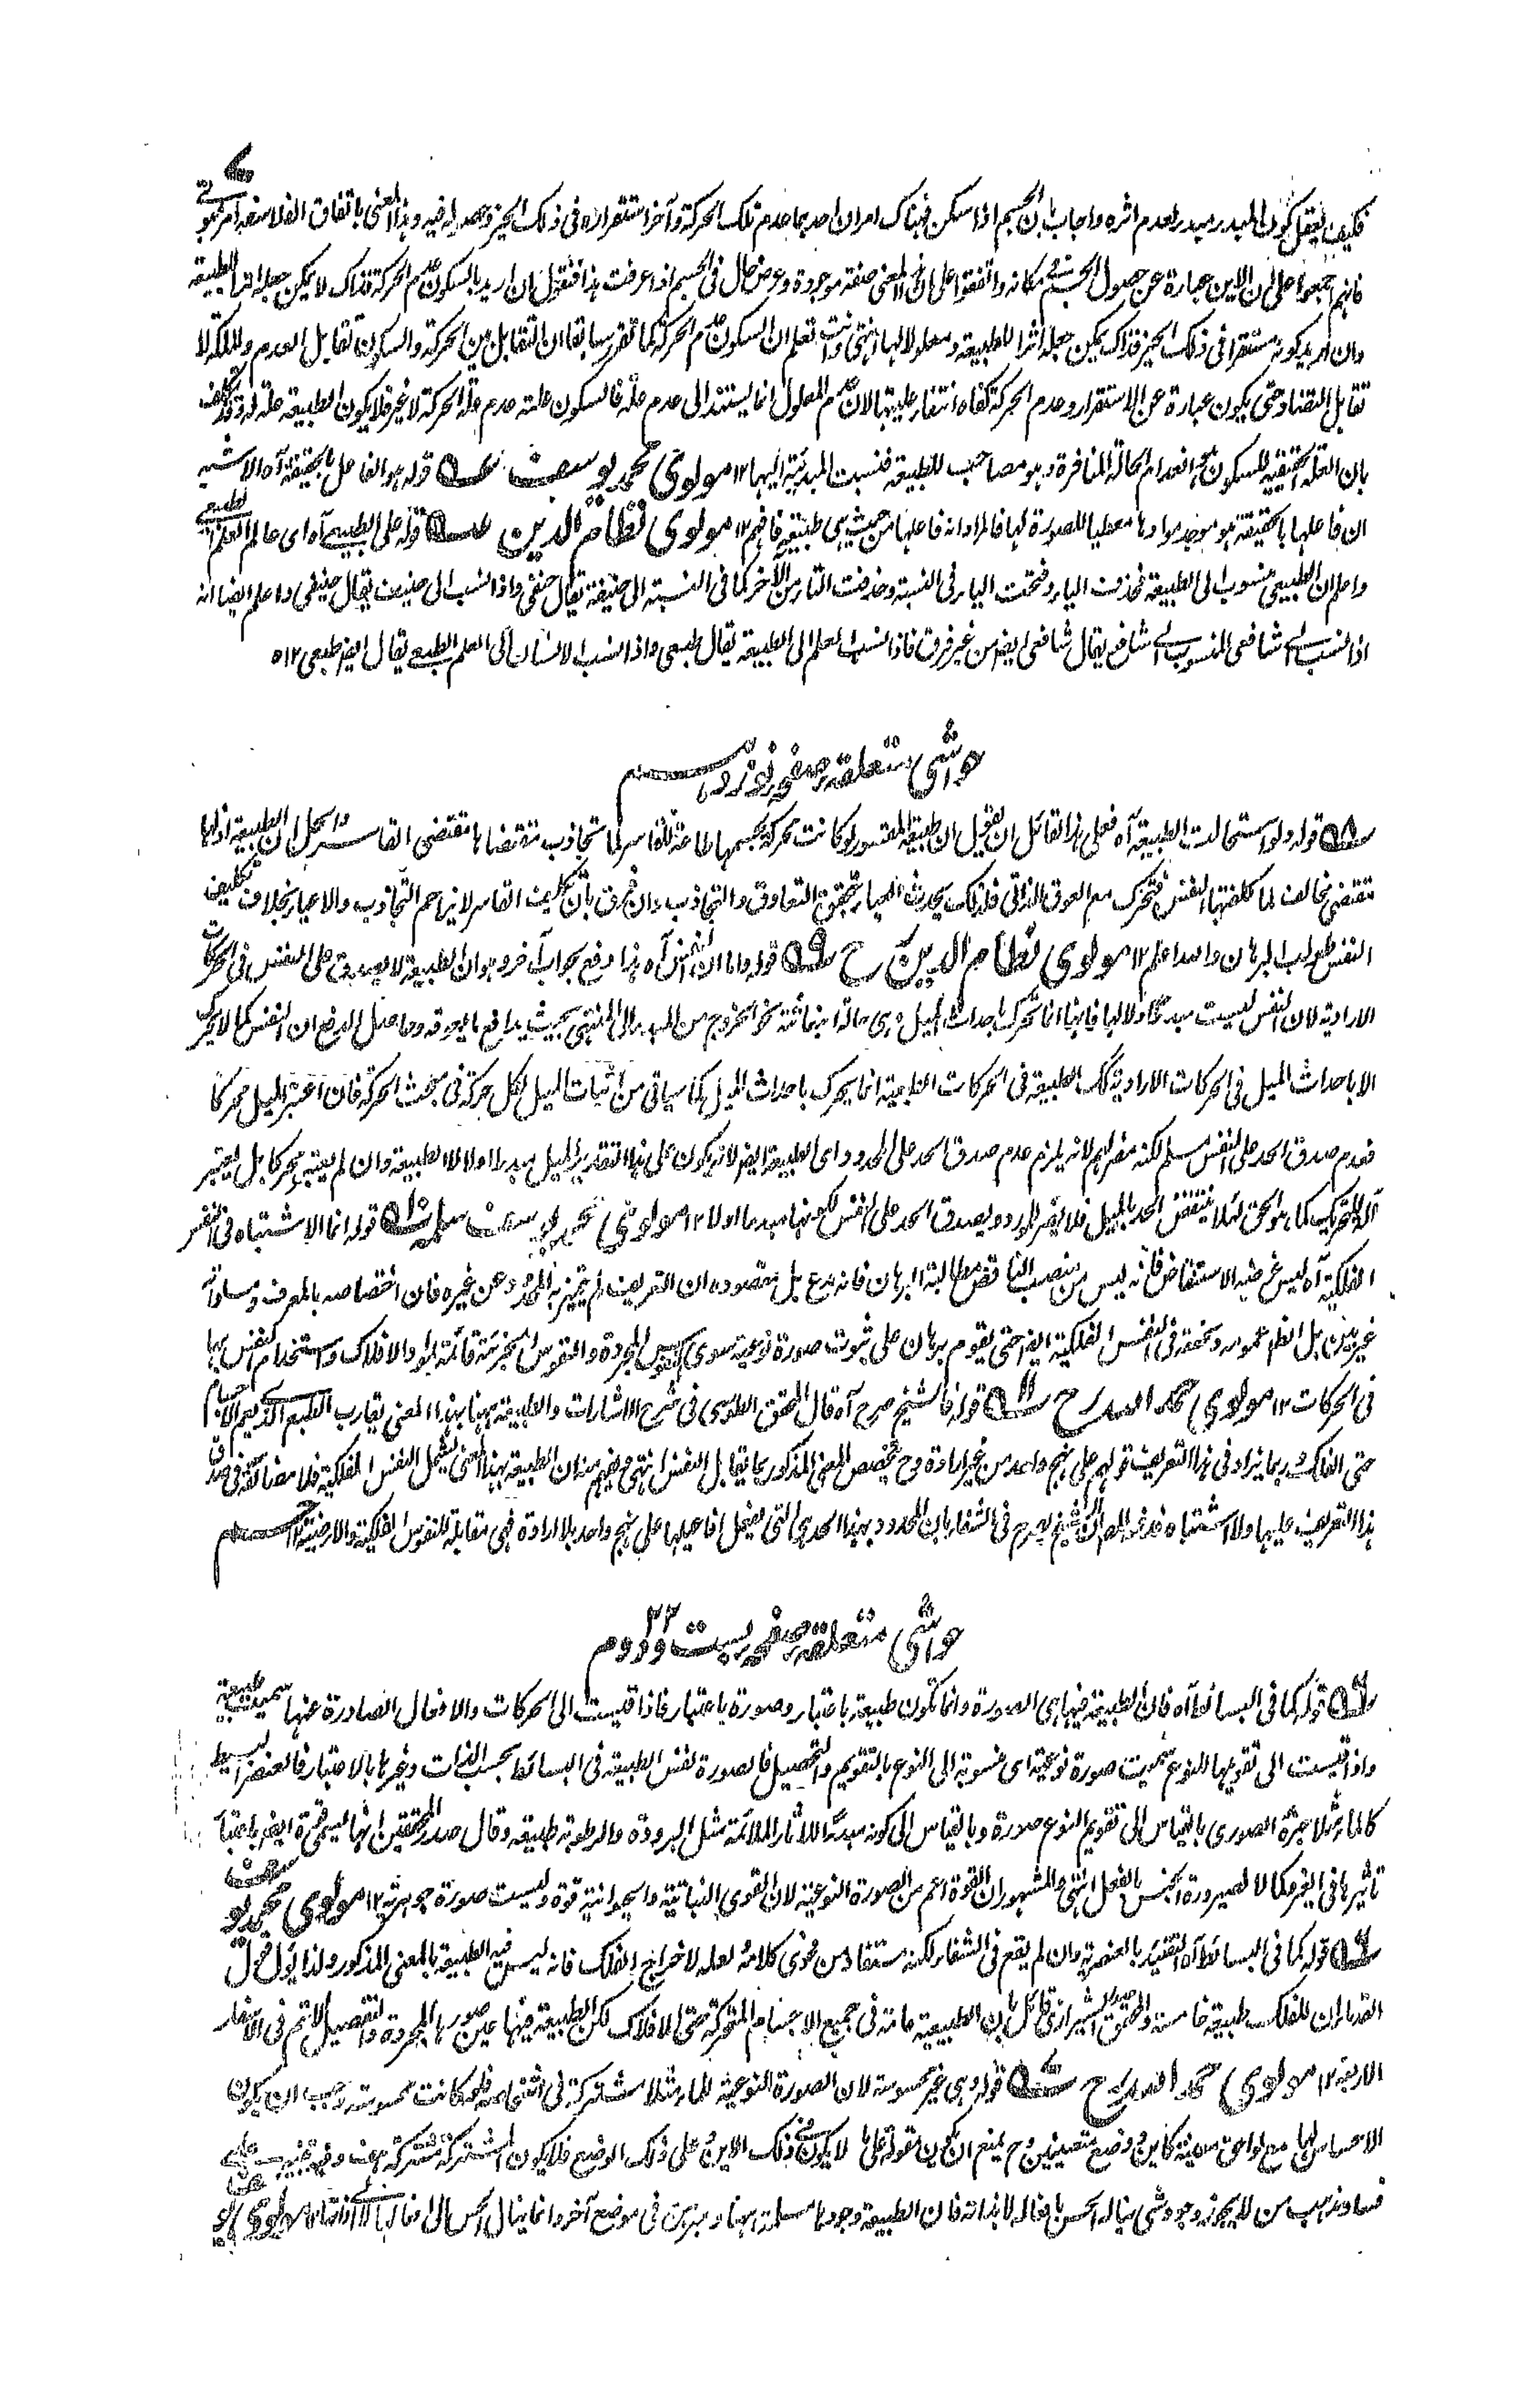 فكيف يعقل كون المبدء مبدء لعدم اثره واجاب بان الجسم اذا سكن فهناك امران احدهما عدم تلك الحركة وآخر استقراره فى ذلك الحيز وحصوله فيه وهذا المعنى باتفاق الفلاسفة امر ثبوتے
فانهم اجمعوا على ان الاين عبارة عن حصول الجسم فى مكانه واتفقوا على ان هذا المعنى صفة موجودة وعرض حال فى الجسم اذا عرفت هذا فنقول ان اريد بالسكون عدم الحركة فذاك لا يمكن جعله اثرا للطبيعة
وان اريد كونه مستقرا فى ذلك الحيز فذاك يمكن جعله اثرا للطبيعة ومعلولا لها انتهى وانت تعلم ان السكون عدم الحركة كما تقرر سابقا ان التقابل بين الحركة والسكون تقابل العدم والملكة لا
تقابل التضاد حتى يكون عبارة عن الاستقرار وعدم الحركة كفاه انتفاء عليتها لان عدم المعلول انما يستند الى عدم علة فالسكون علته عدم علة الحركة لا غير فلا يكون الطبيعة علة له وقد تكلف
بان العلة الحقيقية للسكون هو انعدام الحالة المنافرة وهو مصاحب للطبيعة فنسبت المبدئية اليها ١٢ مولوى محمد يوسف قوله هو الفاعل بالحقيقة آه الاشبه
ان فاعلها بالحقيقة هو موجد موادها معطيا للصورة لها فالمراد انه فاعلها من حيث هى طبيعة فافهم ١٢ مولوى نظام الدين قوله على الطبيعى آه اى عالم العلم الطبيعى
واعلم ان الطبيعى منسوب الى الطبيعة فحذفت الياء وفتحت الباء فى النسبة وحذفت التاء من الآخر كما فى النسبة الى حنيفة يقال حنفى واذا نسب الى حنيف يقال حنيفى واعلم ايضا انه
اذا نسب الى شافعى المنسوب الى شافع يقال شافعى ايضا من غير فرق فاذا نسب العلم الى الطبيعة يقال طبعى واذا نسب الانسان الى العلم الطبعى يقال ايضا طبعى ١٢
حواشى متعلقه صفحه نوزدهم
قوله ولو استحالت الطبيعة آه فعلى هذا القائل ان يقول ان طبيعة المقسور لو كانت محركة لجسمها طاعة للقاسر لما تجاذب مقتضاها مقتضى القاسر والحل ان الطبيعة اذا لها
مقتضى مخالف لما كلفتها النفس فتحرك مع العوق الذاتى فلذلك يحدث الاعياء بتحقق التعاوق والتجاذب وان فرق بان تكليف القاسر لا يزاحم التجاذب والاعياء بخلاف تكليف
النفس طولب البرهان والله اعلم ١٢ مولوى نظام الدين رح قوله واما ان النفس آه هذا دفع بجواب آخر وهو ان الطبيعة لا يصدق على النفس فى الحركات
الارادية لان النفس ليست مبدء اولا لها فانها انما تحرك باحداث الميل وهى حالة انبعاثية نحو الخروج من المبدء الى المنتهى بحيث يدافع ما يعوقه وحاصل الدفع ان النفس كما لا يحرك
الا باحداث الميل فى الحركات الارادية كذلك الطبيعة فى الحركات الطباعية انما يحرك باحداث الميل كما سياتى من اثبات الميل لكل حركة فى بحث الحركة فان اعتبر الميل محركا
فعدم صدق الحد على النفس مسلم لكنه مضر لهم لانه يلزم عدم صدق الحد على المحدود اى الطبيعة ايضا لانه يكون على هذا التقدير الميل مبدء اولا لا الطبيعة وان لم يعتبر محركا بل يعتبر
آلة للتحريك كما هو الحق لئلا ينتقض الحد بالميل فلا يضر للورود ويصدق الحد على النفس لكونها مبدء ما اولا ١٢ مولوى محمد يوسف سلمه قوله انما الاشتباه فى النفس
الفلكية آه ليس غرضه الاستنقاض فانه ليس من منصب الناقض مطالبة البرهان فانه مدع بل مقصوده ان التعريف لم يتميز به المحدود عن غيره فان اختصاصه بالمعرف ومساواته
غير مبين بل الظاهر عمومه وتحققه فى النفس الفلكية ايضا حتى يقوم برهان على ثبوت صورة نوعية سوى النفوس المجردة والنفوس الجزئية قائمة بمواد الافلاك واستخدام النفس بها
فى الحركات ١٢ مولوى حمد الله رح قوله فالشيخ صرح آه قال المحقق الطوسى فى شرح الاشارات والطبيعة ههنا بهذا المعنى يقارب الطبع الذى يعم الاجسام
حتى الفلك وربما يزاد فى هذا التعريف قولهم على نهج واحد من غير ارادة وح يتخصص المعنى المذكور بما يقابل النفس انتهى ويفهم منه ان الطبيعة بهذا المعنى يشمل النفس الفلكية فلا مضائقة فى صدق
هذا التعريف عليها ولا اشتباه الشيخ صرح فى الشفاء بان المحدود بهذا الحد هى التى يفعل افاعيلها على نهج واحد بلا ارادة فهى مقابلة للنفوس الفلكية والارضية ١٢
حواشى متعلقه صفحه بست ودوم ٢٢
قوله كما فى البسائط آه فان الطبيعة فيها هى الصورة وانما تكون طبيعة باعتبار وصورة باعتبار فاذا قيست الى الحركات والافعال الصادرة عنها سميت طبيعة
واذا قيست الى تقويمها للنوع سميت صورة نوعية اى منسوبة الى النوع بالتقويم والتحصيل فالصورة نفس الطبيعة فى البسائط بحسب الذات وغيرها بالاعتبار فالعنصر البسيط
كالماء مثلا جزؤه الصورى بالقياس الى تقويم النوع صورة وبالقياس الى كونه مبدء للآثار الملائمة مثل البرودة والرطوبة طبيعة وقال صدر المحققين انها ليسمى قوة ايضا باعتبار
تاثيرها فى الغير كمالا لصيرورة الجنس بالفعل انتهى والمشهور ان القوة اعم من الصورة النوعية لان القوى النباتية والحيوانية قوة وليست صورة جوهرية ١٢ مولوى محمد يوسف
قوله كما فى البسائط آه التقييد بالعنصرية وان لم يقع فى الشفاء لكنه مستفاد من فحوى كلامه لعله لاخراج الفلك فانه ليس فيه الطبيعة بالمعنى المذكور ولذا يؤل قول
القدماء ان للفلك طبيعة خامسة والمحقق الصدر الشيرازى قائل بان الطبيعة عامة فى جميع الاجسام المتحركة حتى الافلاك لكن الطبيعة فيها عين صورها المجردة والتفصيل الاتم فى الاسفار
الاربعة ١٢ مولوى حمد الله رح قوله وهى غير محسوسة لان الصورة النوعية للماء مثلا مشتركة فى اشخاصه فلو كانت محسوسة وجب ان يكون
الاحساس بها مع لواحق معينة كاين ووضع متعينين وح يمتنع ان يكون مقولة على ما لا يكون فى ذلك الاين وعلى ذلك الوضع فلا يكون المشتركة مشتركة هف وفيه تنبيه على
فساد مذهب من لا يجوز وجود شى يناله الحس بافعاله لا بذاته فان الطبيعة وجودها مسلمة ههنا ومبرهن فى موضع آخر وانما ينال الحس الى افعالها لا ذاتها ١٢ مولوى